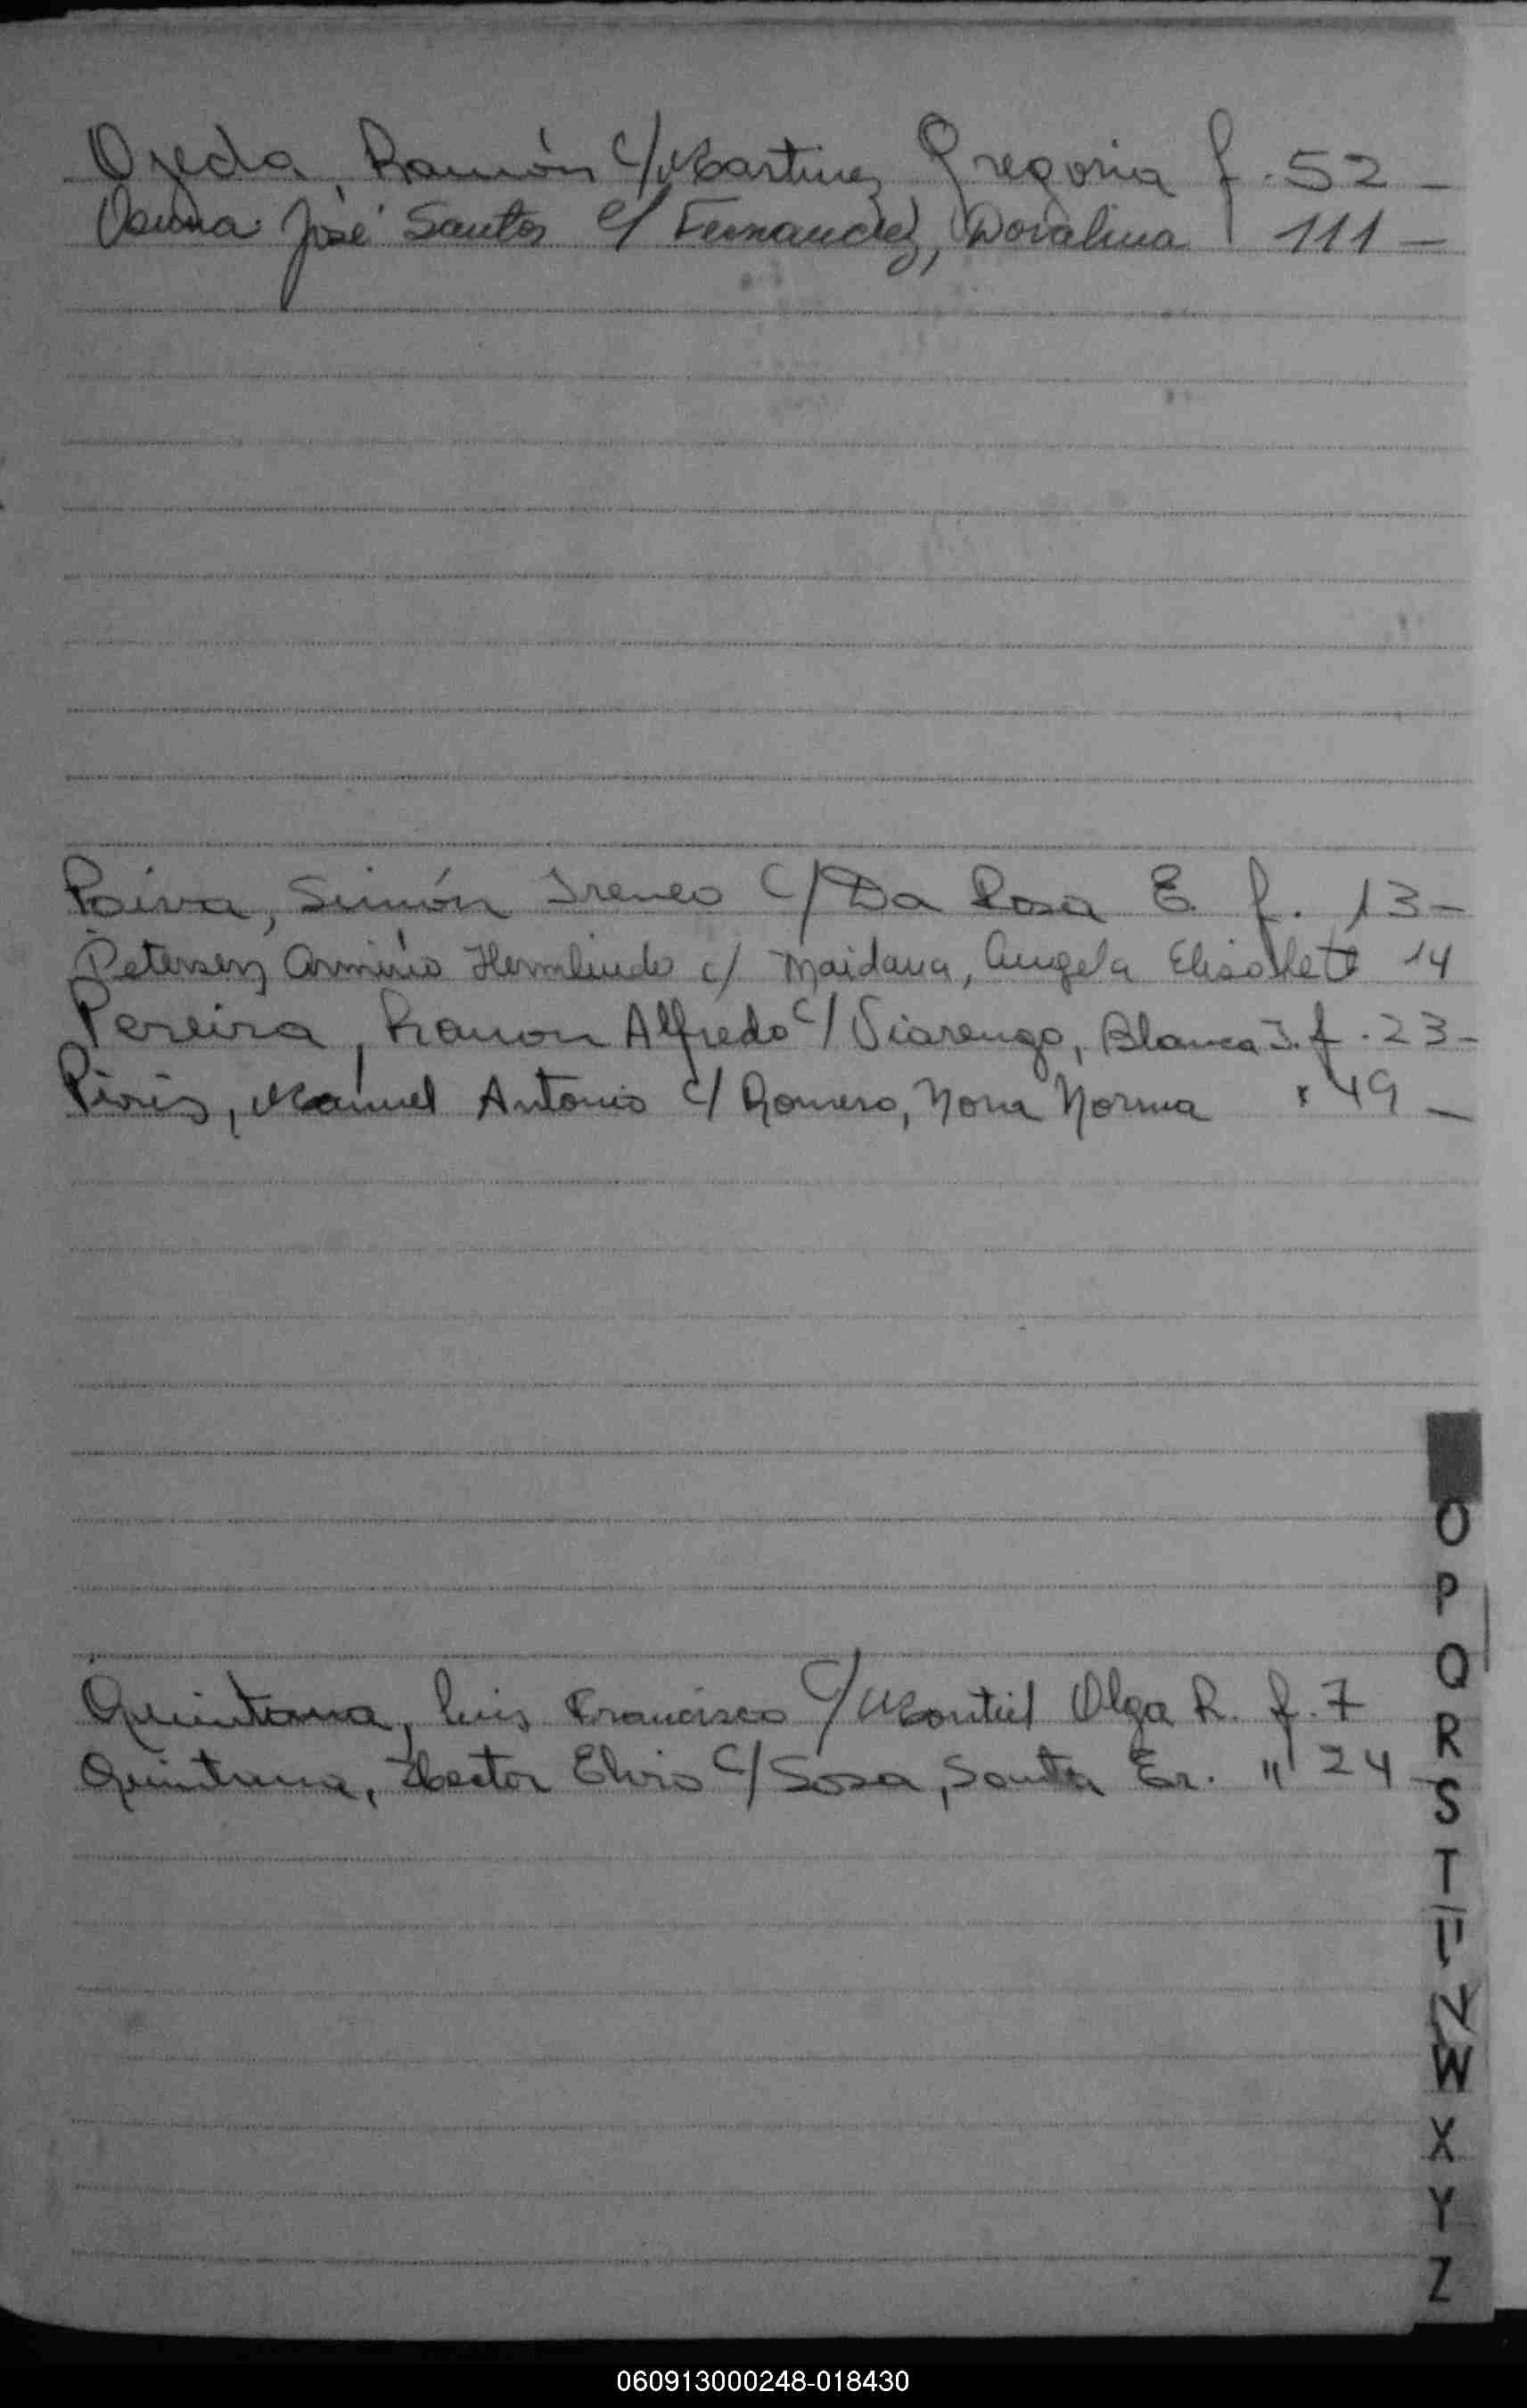 Ojeda, Ramón c/ Martinez Gregoria f. 52 -
Osuna José Santos c/ Fernandez, Doralina 111 -
Paiva, Simón Ireneo c/ Da Rosa E. f. 13 -
Petersen, Arminio Hermlindo c/ Maidana, Angela 14
Pereira, Ramon Alfredo c/ Viarengo, Blanca I. f. 23 -
Piris, Manuel Antonio c/ Romero, Nora Norma " 49 -
Quintana, Luis Francisco c/ Montiel Olga R. f. 7
Quintana, Hector Elvio c/ Sosa, Santa Er. " 24 -
O
P
Q
R
S
T
U
V
W
X
Y
Z
060913000248-018430